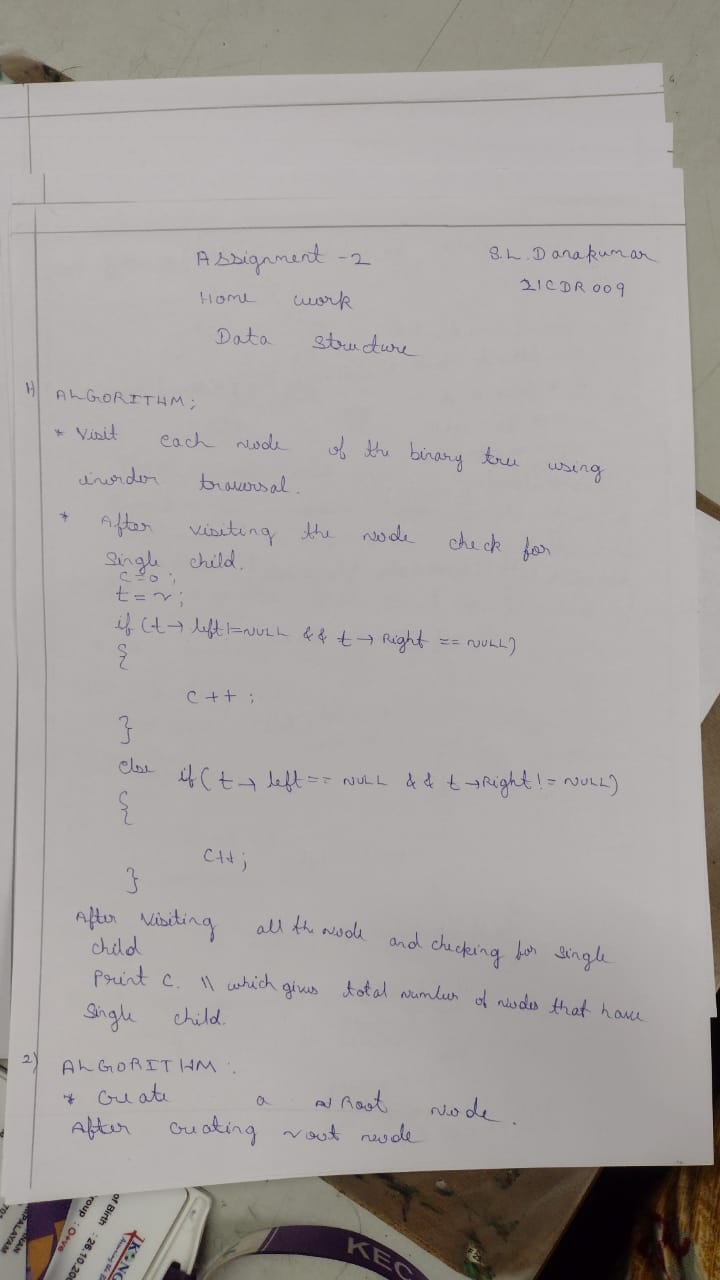 Assignment - 2
S.L. Danakumar
21CDR009
Home work
Data structure
1) ALGORITHM;
* Visit each node of the binary tree using
inorder traversal.
* After visiting the node check for
Single child.
c=0;
t=r;
if (t→ left!=NULL && t→ Right == NULL)
{
c++;
}
else if (t→ left== NULL && t→Right != NULL)
{
c++;
}
After Visiting all the node and checking for single
child
Print c. \\ which gives total number of nodes that have
Single child.
2) ALGORITHM:
* Create a Root Node.
After creating root node
of Birth : 26.10.200
roup : O+ve
KONG
KEC